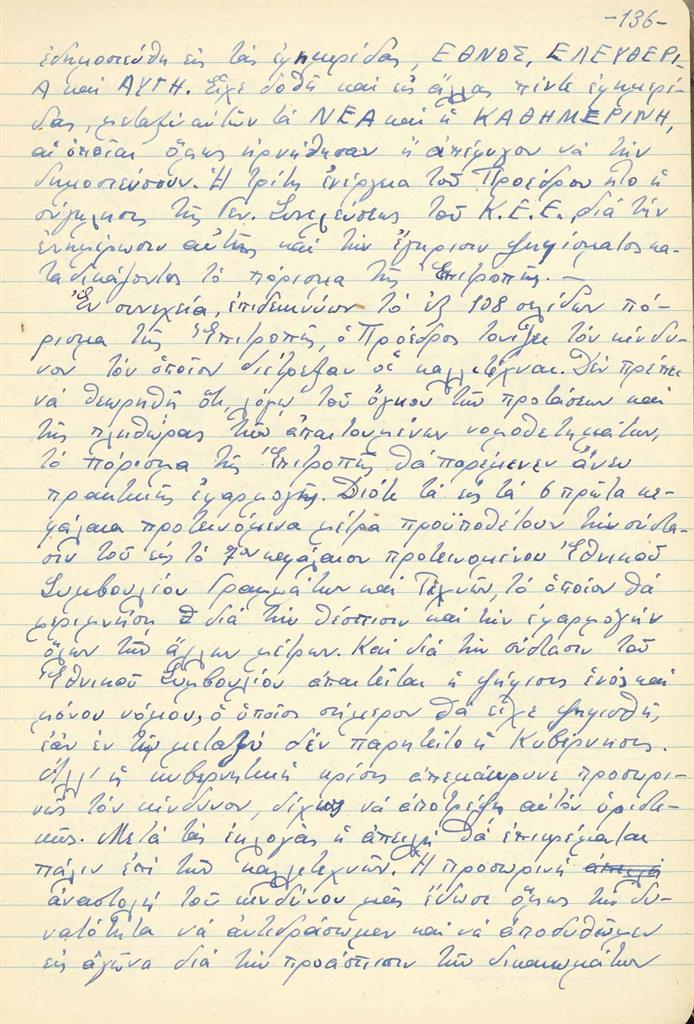 -136-
ἐδημοσιεύθη εἰς τὰς ἐφημερίδας, ΕΘΝΟΣ, ΕΛΕΥΘΕΡΙ-
Α καὶ ΑΥΓΗ. Εἶχε δοθῆ καὶ εἰς ἄλλας πέντε ἐφημερί-
δας, μεταξὺ αὐτῶν τὰ ΝΕΑ καὶ ἡ ΚΑΘΗΜΕΡΙΝΗ,
αἱ ὁποῖαι ὅμως ἠρνήθησαν ἢ ἀπέφυγον νὰ τὴν
δημοσιεύσουν. Ἡ τρίτη ἐνέργεια τοῦ Προέδρου ἦτο ἡ
σύγκλησις τῆς Γεν. Συνελεύσεως τοῦ Κ.Ε.Ε. διὰ τὴν
ἐνημέρωσιν αὐτῆς καὶ τὴν ἔγκρισιν ψηφίσματος κα-
ταδικάζοντος τὸ πόρισμα τῆς Ἐπιτροπῆς. —
Ἐν συνεχείᾳ, ἐπιδεικνύων τὸ ἐξ 108 σελίδων πό-
ρισμα τῆς Ἐπιτροπῆς, ὁ Πρόεδρος τονίζει τὸν κίνδυ-
νον τὸν ὁποῖον διέτρεξαν οἱ καλλιτέχναι. Δὲν πρέπει
νὰ θεωρηθῆ ὅτι λόγῳ τοῦ ὄγκου τῶν προτάσεων καὶ
τῆς πληθώρας τῶν ἀπαιτουμένων νομοθετημάτων,
τὸ πόρισμα τῆς Ἐπιτροπῆς θὰ παρέμενεν ἄνευ
πρακτικῆς ἐφαρμογῆς. Διότι τὰ εἰς τὰ 6 πρῶτα κε-
φάλαια προτεινόμενα μέτρα προϋποθέτουν τὴν σύστα-
σιν τοῦ εἰς τὸ 7ον κεφάλαιον προτεινομένου Ἐθνικοῦ
Συμβουλίου Γραμμάτων καὶ Τεχνῶν, τὸ ὁποῖον θὰ
μεριμνήση διὰ τὴν θέσπισιν καὶ τὴν ἐφαρμογὴν
ὅλων τῶν ἄλλων μέτρων. Καὶ διὰ τὴν σύστασιν τοῦ
Ἐθνικοῦ Συμβουλίου ἀπαιτεῖται ἡ ψήφισις ἑνὸς καὶ
μόνου νόμου, ὁ ὁποῖος σήμερον θὰ εἶχε ψηφισθῆ,
ἐὰν ἐν τῷ μεταξὺ δὲν παρητεῖτο ἡ Κυβέρνησις.
Ἀλλ' ἡ κυβερνητικὴ κρίσις ἀπεμάκρυνε προσωρι-
νῶς τὸν κίνδυνον, δίχως νὰ ἀποτρέψη αὐτὸν ὁριστι-
κῶς. Μετὰ τὰς ἐκλογὰς ἡ ἀπειλὴ θὰ ἐπικρέμαται
πάλιν ἐπὶ τῶν καλλιτεχνῶν. Ἡ προσωρινὴ ἀπειλὴ
ἀναστολὴ τοῦ κινδύνου μᾶς ἔδωσε ὅμως τὴν δυ-
νατότητα νὰ ἀντιδράσωμεν καὶ νὰ ἀποδυθῶμεν
εἰς ἀγῶνα διὰ τὴν προάσπισιν τῶν δικαιωμάτων